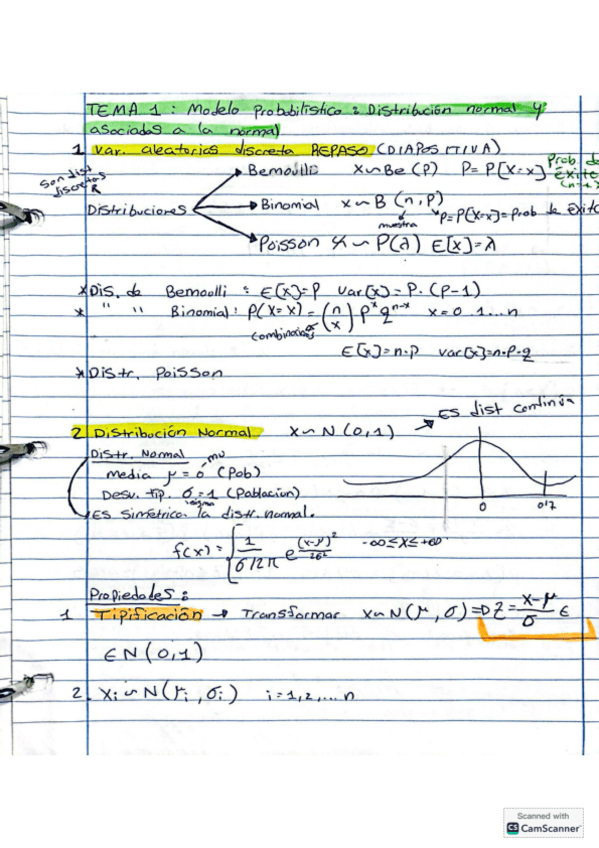 TEMA 1: Modelo Probabilístico: Distribución normal y
asociadas a la normal
1 Var. aleatorias discreta REPASO (DIAPOSITIVA)
Son dist discretas
Distribuciones
Bernoulli X∽Be(p) P= P[X=x] Prob de éxito (n=1)
Binomial X∽B(n,p) P=P[X=x]=Prob de éxito
muestra
Poisson X∽P(λ) E[x]=λ
*Dis. de Bernoulli : E[x]=P Var[x]=P.(P-1)
* " " Binomial: P(X=x)=(n x) p^x q^n-x x=0,1...n
combinatorio
E[x]=n.p var[x]=n.p.q
*Distr. Poisson
2 Distribución Normal X∽N(0,1) → ES dist continúa
Distr. Normal
mu
media μ=0 (Pob)
Desv. tip. σ=1 (Población)
sigma
ES simétrica la distr. normal.
0 0'7
f(x)={1/σ√2π e^(x-μ)²/2σ² -∞≤X≤+∞
Propiedades:
1 Tipificación → Transformar X∽N(μ,σ)=>Z=x-μ/σ ∈
∈N(0,1)
2. Xi∽N(μi,σi) i=1,2,...n
Scanned with
CS CamScanner